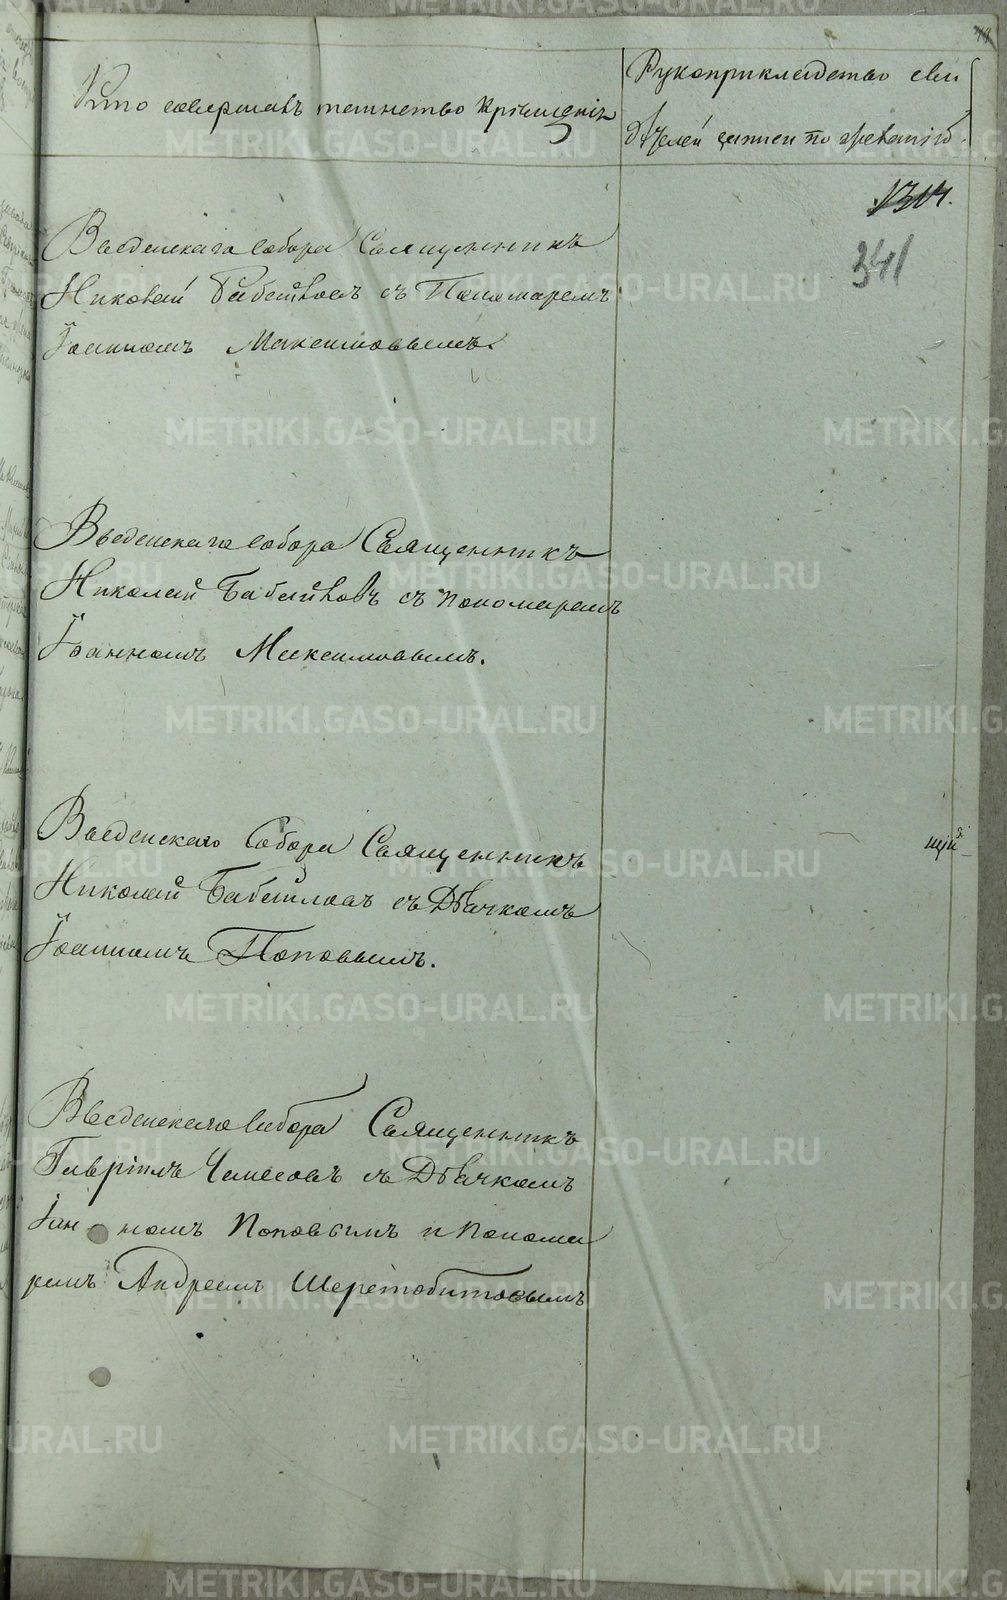 Кто совершалъ таинство крещенія
Рукоприкладство сви
дѣтелей записи по желанію
1314.
341
Введенскаго собора Священникъ
Николай Бабайловъ съ Пономаремъ
Іоанномъ Максимовымъ.
Введенскаго собора Священникъ
Николай Бабайловъ съ пономаремъ
Іоанномъ Максимовымъ.
Введенскаго Собора Священникъ
Николай Бабайловъ съ Дьячкомъ
Іоанномъ Поповымъ.
щій
Введенскаго собора Священникъ
Гавріилъ Чемесовъ съ Дьячкомъ
Іоанномъ Поповымъ и Понома
ремъ Андреемъ Шеретобитовымъ
METRIKI.GASO-URAL.RU